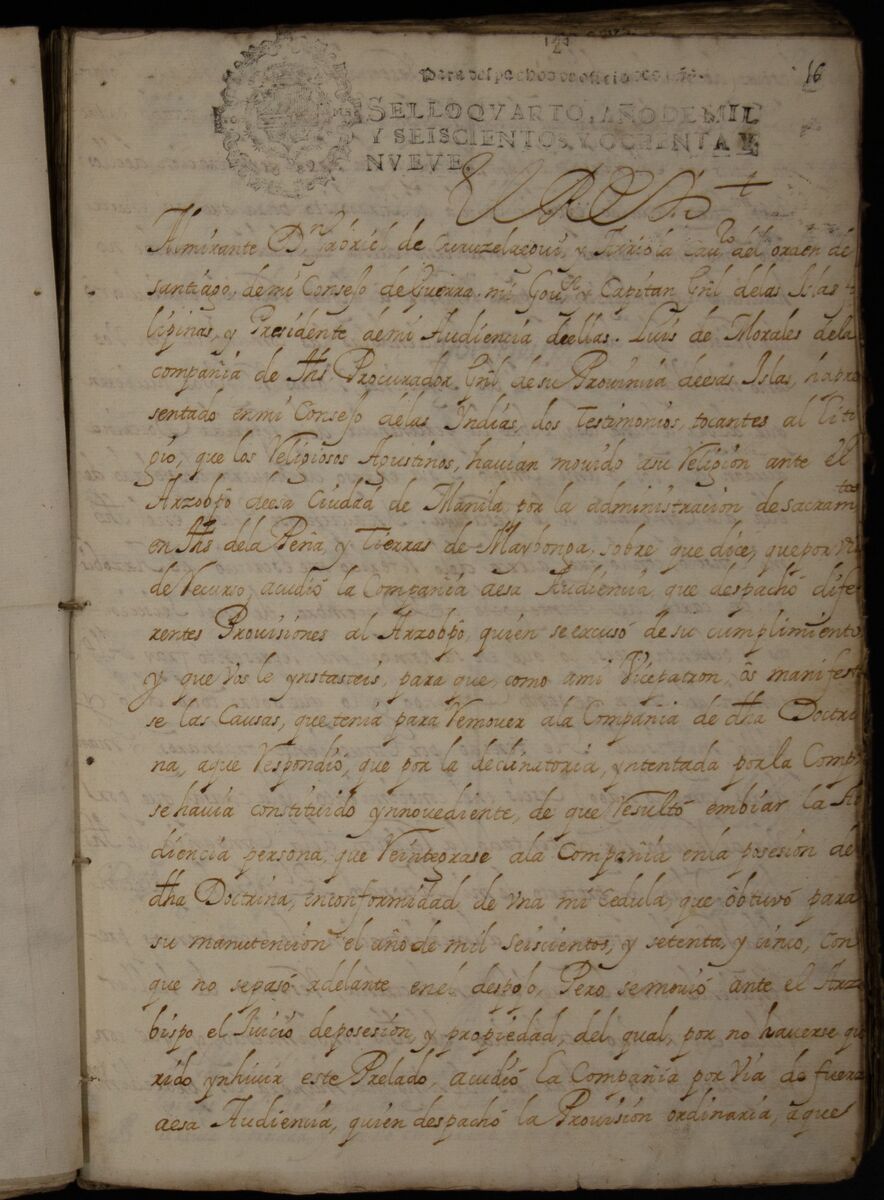 16
Para despachos de oficio dos mrs.
SELLO QVARTO, AÑO DE MIL
Y SEISCIENTOS, Y OCHENTA Y
NVEVE.
El Rey
Almirante Dn. Gabriel de Curuzelaegui, y Arriola Cauo. del orden de
santiago, de mi Consejo de Guerra mi Gour. y Capitan Gril delas Islas
lipinas, y Presidente demi Audiencia deellas. Luis de Morales dela
compañia de Jhs Procurador Gril de su Prouincia deesas Islas, hapre
sentado enmi Consejo delas Yndias, dos Testimonios, tocantes al liti
gio, que los Religiosos Agustinos, hauian mouido asu Religion ante el
Arzobpo deesa Ciudad de Manila por la administracion de sacramtos
en Jhs dela Peña, y Tierras de Maybonga, sobre que dice, que por via
de Recurso, acudió la Compañia aesa Audiencia, que despachó dife
rentes Prouisiones al Arzobpo, quien se excusó de su cumplimiento
y que Vos le ynstasteis, para que, como ami Vicepatron, ôs manifest
se las Causas, que tenia para Remouer ala Compañia de dha Doctri
na, aque Respondió, que por la declinatoria, yntentada por la Compa
se hauia constituido ynnouediente, de que Resultó embiar la Au
diencia persona, que Reintegrase ala Compañia enla posesion de
dha Doctrina, enconformidad de vna mi Cedula, que ôbtuvó para
su manutencion el año de mil seiscientos, y setenta, y cinco, con
que no sepasó adelante enel despojo, Pero semouió ante el Arzo
bispo el Juicio deposesion, y propiedad, del qual, por no hauerse que
rido ynhiuir este Prelado, acudió La Compañia por via de fuerza
aesa Audiencia, quien despachó la Prouision ordinaria, aque